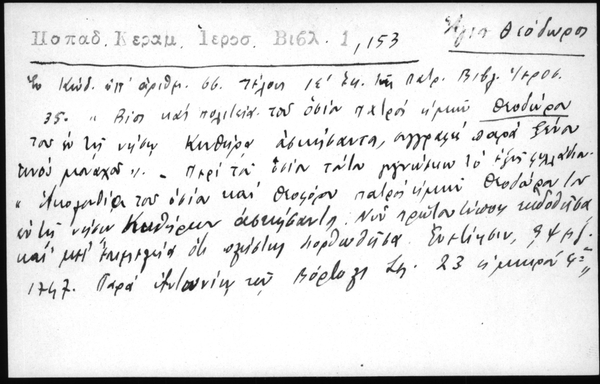 Παπαδ. Κεραμ. Ἱεροσ. Βιβλ. 1, 153
Ἅγιος Θεόδωρος
Ἐν Κώδ. ὑπ' ἀριθμ. 66. τέλους ΙϚ' ἑκ. τῆς Πατρ. Βιβλ. Ἱεροσ.
35. " Βίος καὶ πολιτεία τοῦ ὁσίου πατρὸς ἡμῶν Θεοδώρου
τοῦ ἐν τῇ νήσῳ Κυθήρᾳ ἀσκήσαντος, συγγραφεὶς παρὰ ξένου
τινὸς μοναχοῦ". - Περὶ τοῦ ὁσίου τούτου γινώσκω τὸ ἑξῆς φυλλάδιον.
" Ἀκολουθία τοῦ ὁσίου καὶ θεοφόρου πατρὸς ἡμῶν Θεοδώρου τοῦ
ἐν τῇ νήσῳ Κυθήρων ἀσκήσαντος. Νῦν πρῶτον τύποις ἐκδοθεῖσα
καὶ μετ' ἐπιμελείας ὅτι πλείστης διορθωθεῖσα. Ἐνετίησιν, ͵αψμζ.
1747. Παρὰ Ἀντωνίῳ τῷ Βόρτολι Σελ. 23 μικροῦ 4ου "